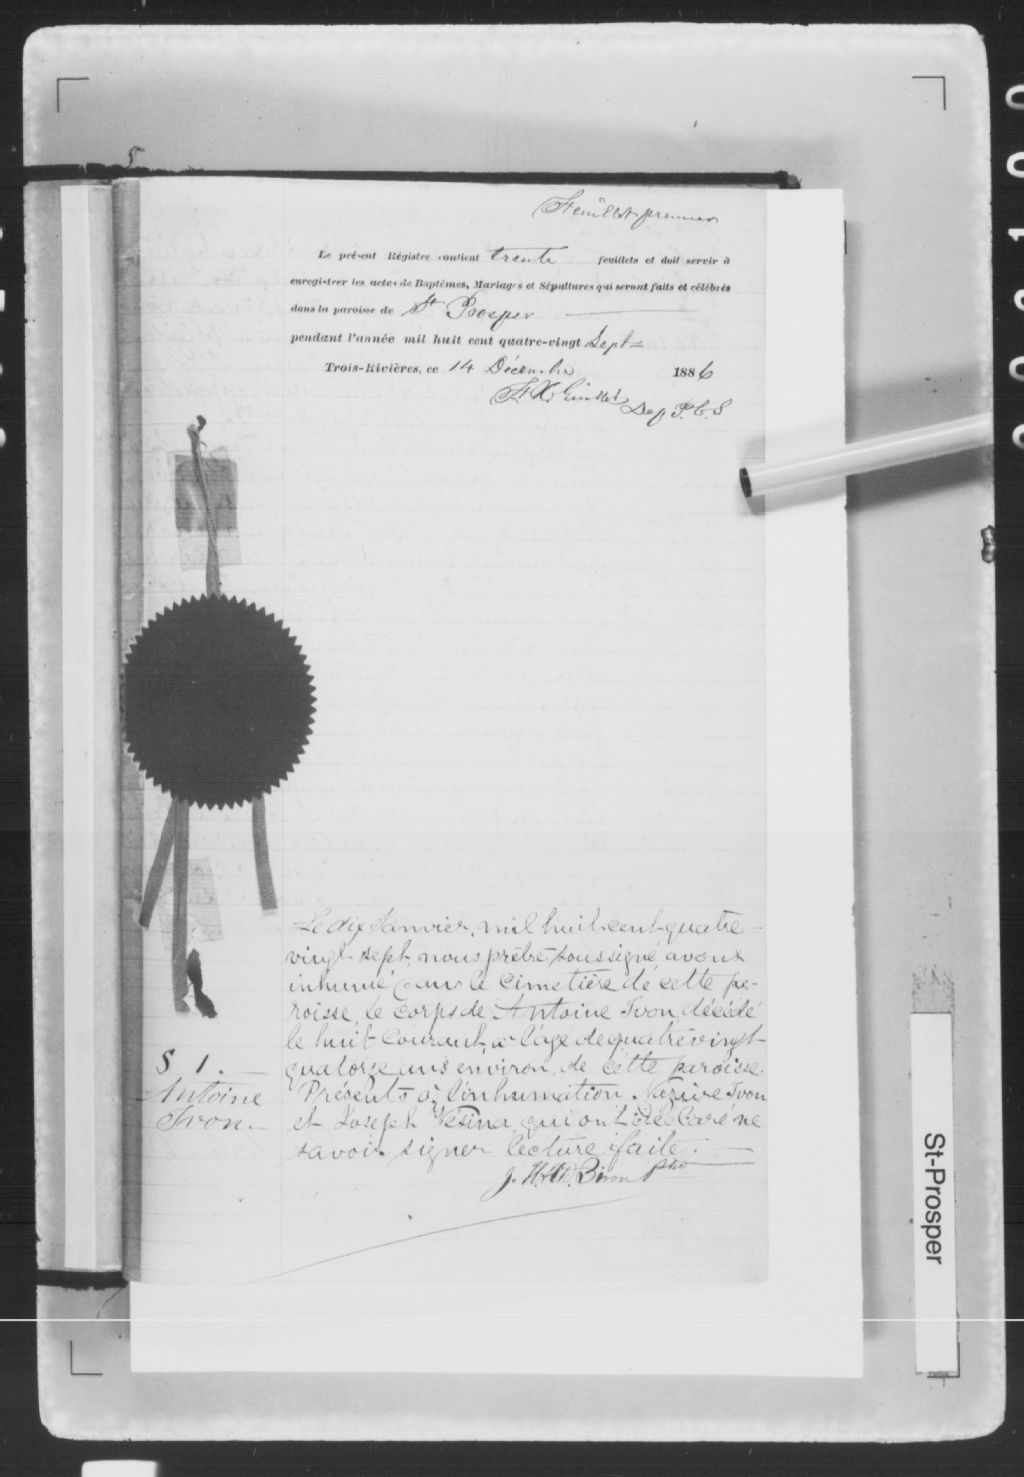 Feuillet premier
Le présent Régistre contient trente feuillets et doit servir à
enregistrer les actes de Baptêmes, Mariages et Sépultures qui seront faits et célébrés
dans la paroisse de St Prosper
pendant l'année mil huit cent quatre-vingt Sept
Trois-Rivières, ce 14 Décembre 1886
Dep P.C.S
Le dix Janvier, mil huit-cent-quatre-
vingt-sept, nous prêtre soussigné avons
inhumé dans le cimetière de cette pa-
roisse, le corps de Antoine Ivon, décédé
le huit courant, à l'âge de quatrevingt-
quatorse ans environ, de cette paroisse.
Présents à l'inhumation Nazaire Ivon
et Joseph Vesina, qui ont déclaré ne
savoir signer lecture faite.
Biron Ptre
S 1.
Antoine
Ivon.
St-Prosper